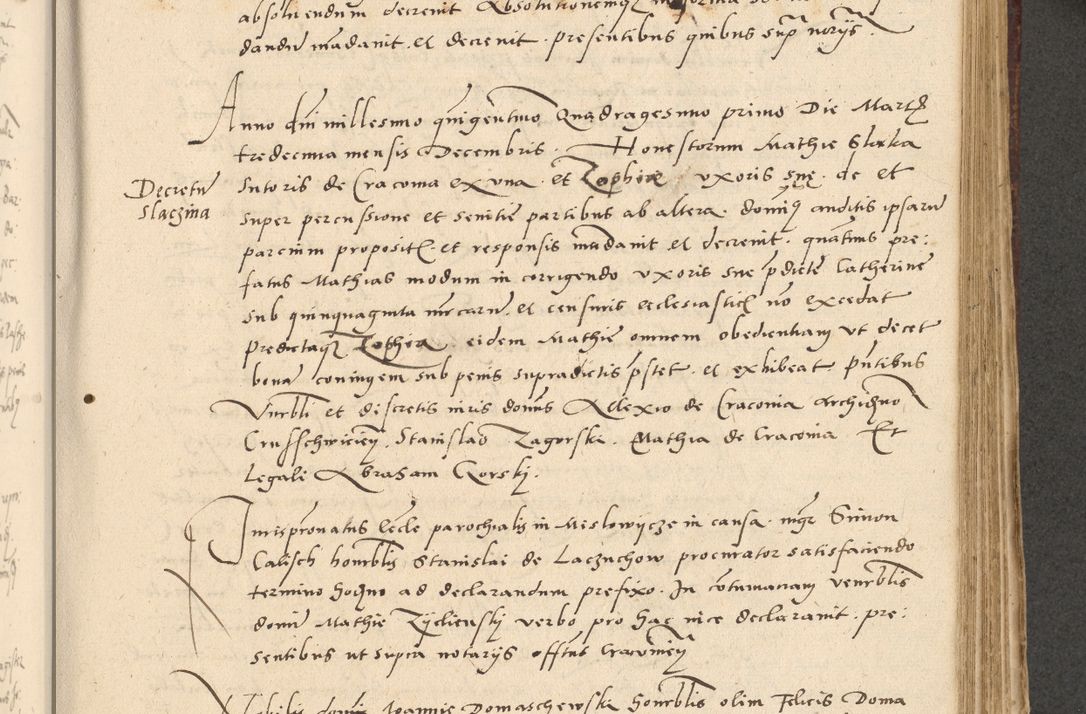 absoluendum decreuit Absolutionemq
dandū mādauit et decreuit presentibus quibus supra notarijs
Anno dni millesimo quīgentmo Quadragesimo primo Die Martis
tredecima mensis Decembris. Honestorum Mathie Slaka
sutoris de Cracouia ex vna et Zophie vxoris sue de et
Decretū
Slaczina
super percussione et seuitie partibus ab altera dominus auditis ipsarū
parcium propositis et responsis mādauit et decreuit quatinus pre:
fatus Mathias modum in corrigendo vxoris sue pdicte Catherine
sub quinquaginta mrcarū et censuris ecclesiasticis nō excedat
predictaq Zophia eidem Mathie omnem obedientiam vt decet
bonā coniugem sub penis supradictis pstet et exhibeat pntibus
Vnrbli et discretis viris dominis Allexio de Cracouia archidno
Crusschwicieñ Stanislao Zagorski Mathia de Cracouia Et
Legali Abraham Gorskj.
Jurispronatus Eccle parochialis in Mislowycze in causa mgr Simon
Calisch honrblis Stanislai de Laczuchow procurator satisfaciendo
termino hodno ad declarandum prefixo In cōtumatiam venrblis
domini Mathie Zyelienskj verbo pro hac vice declarauit pre:
sentibus ut supra notarijs offitus Cracouieñ
Nobilis domini Joannis Domaschewski honrblis olim Felicis Doma